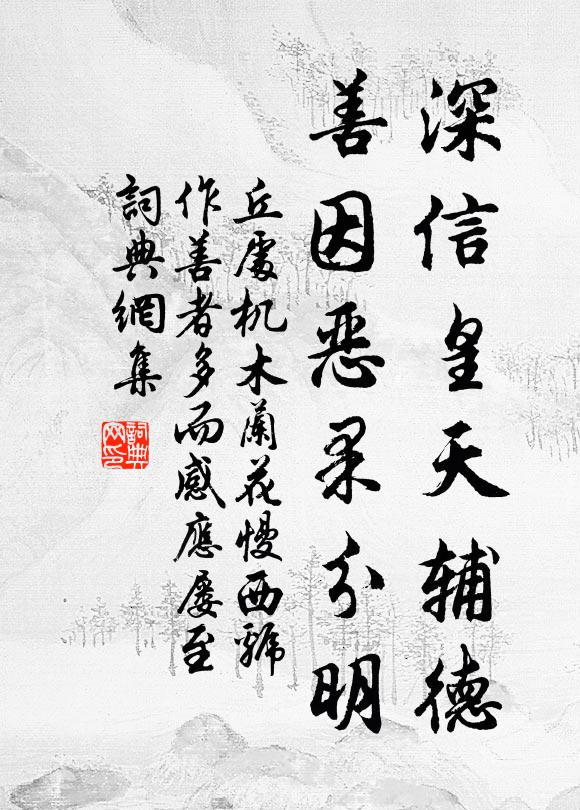 深信皇天辅德
善因恶果分明
丘處机木蘭花慢西虢
作善者多而感應屡至
詞典網集
詞典网印